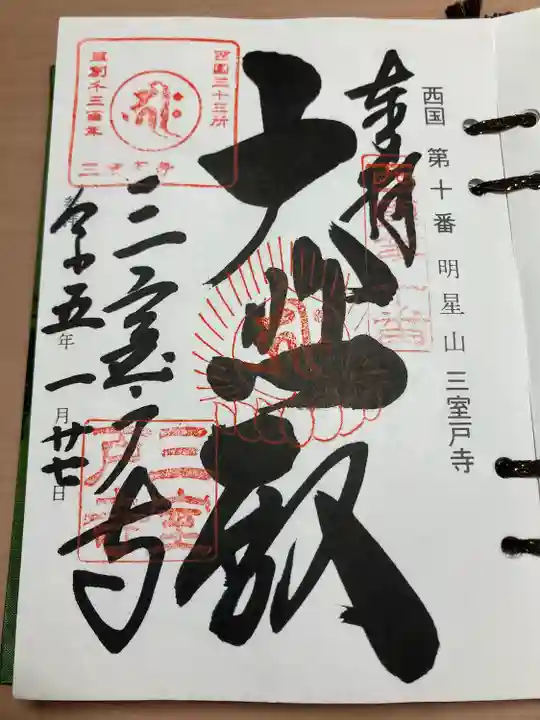 西国 第十番 明星山 三室戸寺
奉拝
大悲殿
三室戸寺
令和五年一月廿七日
西国三十三所
草創千三百年
三室戸寺
西国十番
三室戸寺